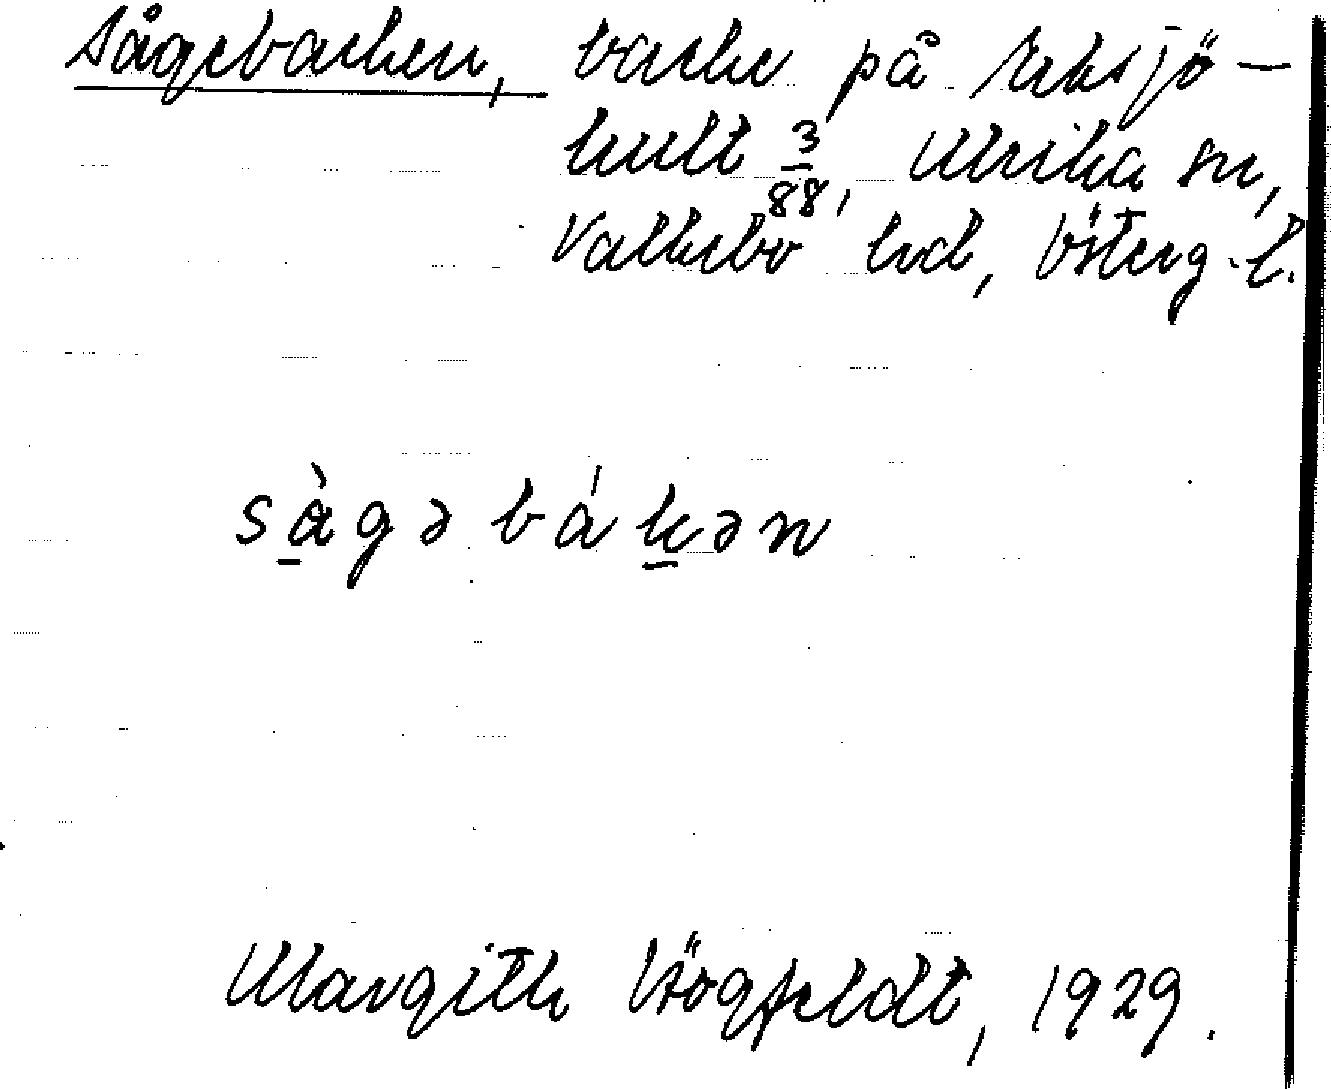 Sågebacken, backe på Eksjö-
hult 3/88, Ulrika sn,
Valkebo hd, Österg. l.
sàgəbákən
Margith Högfeldt, 1929.